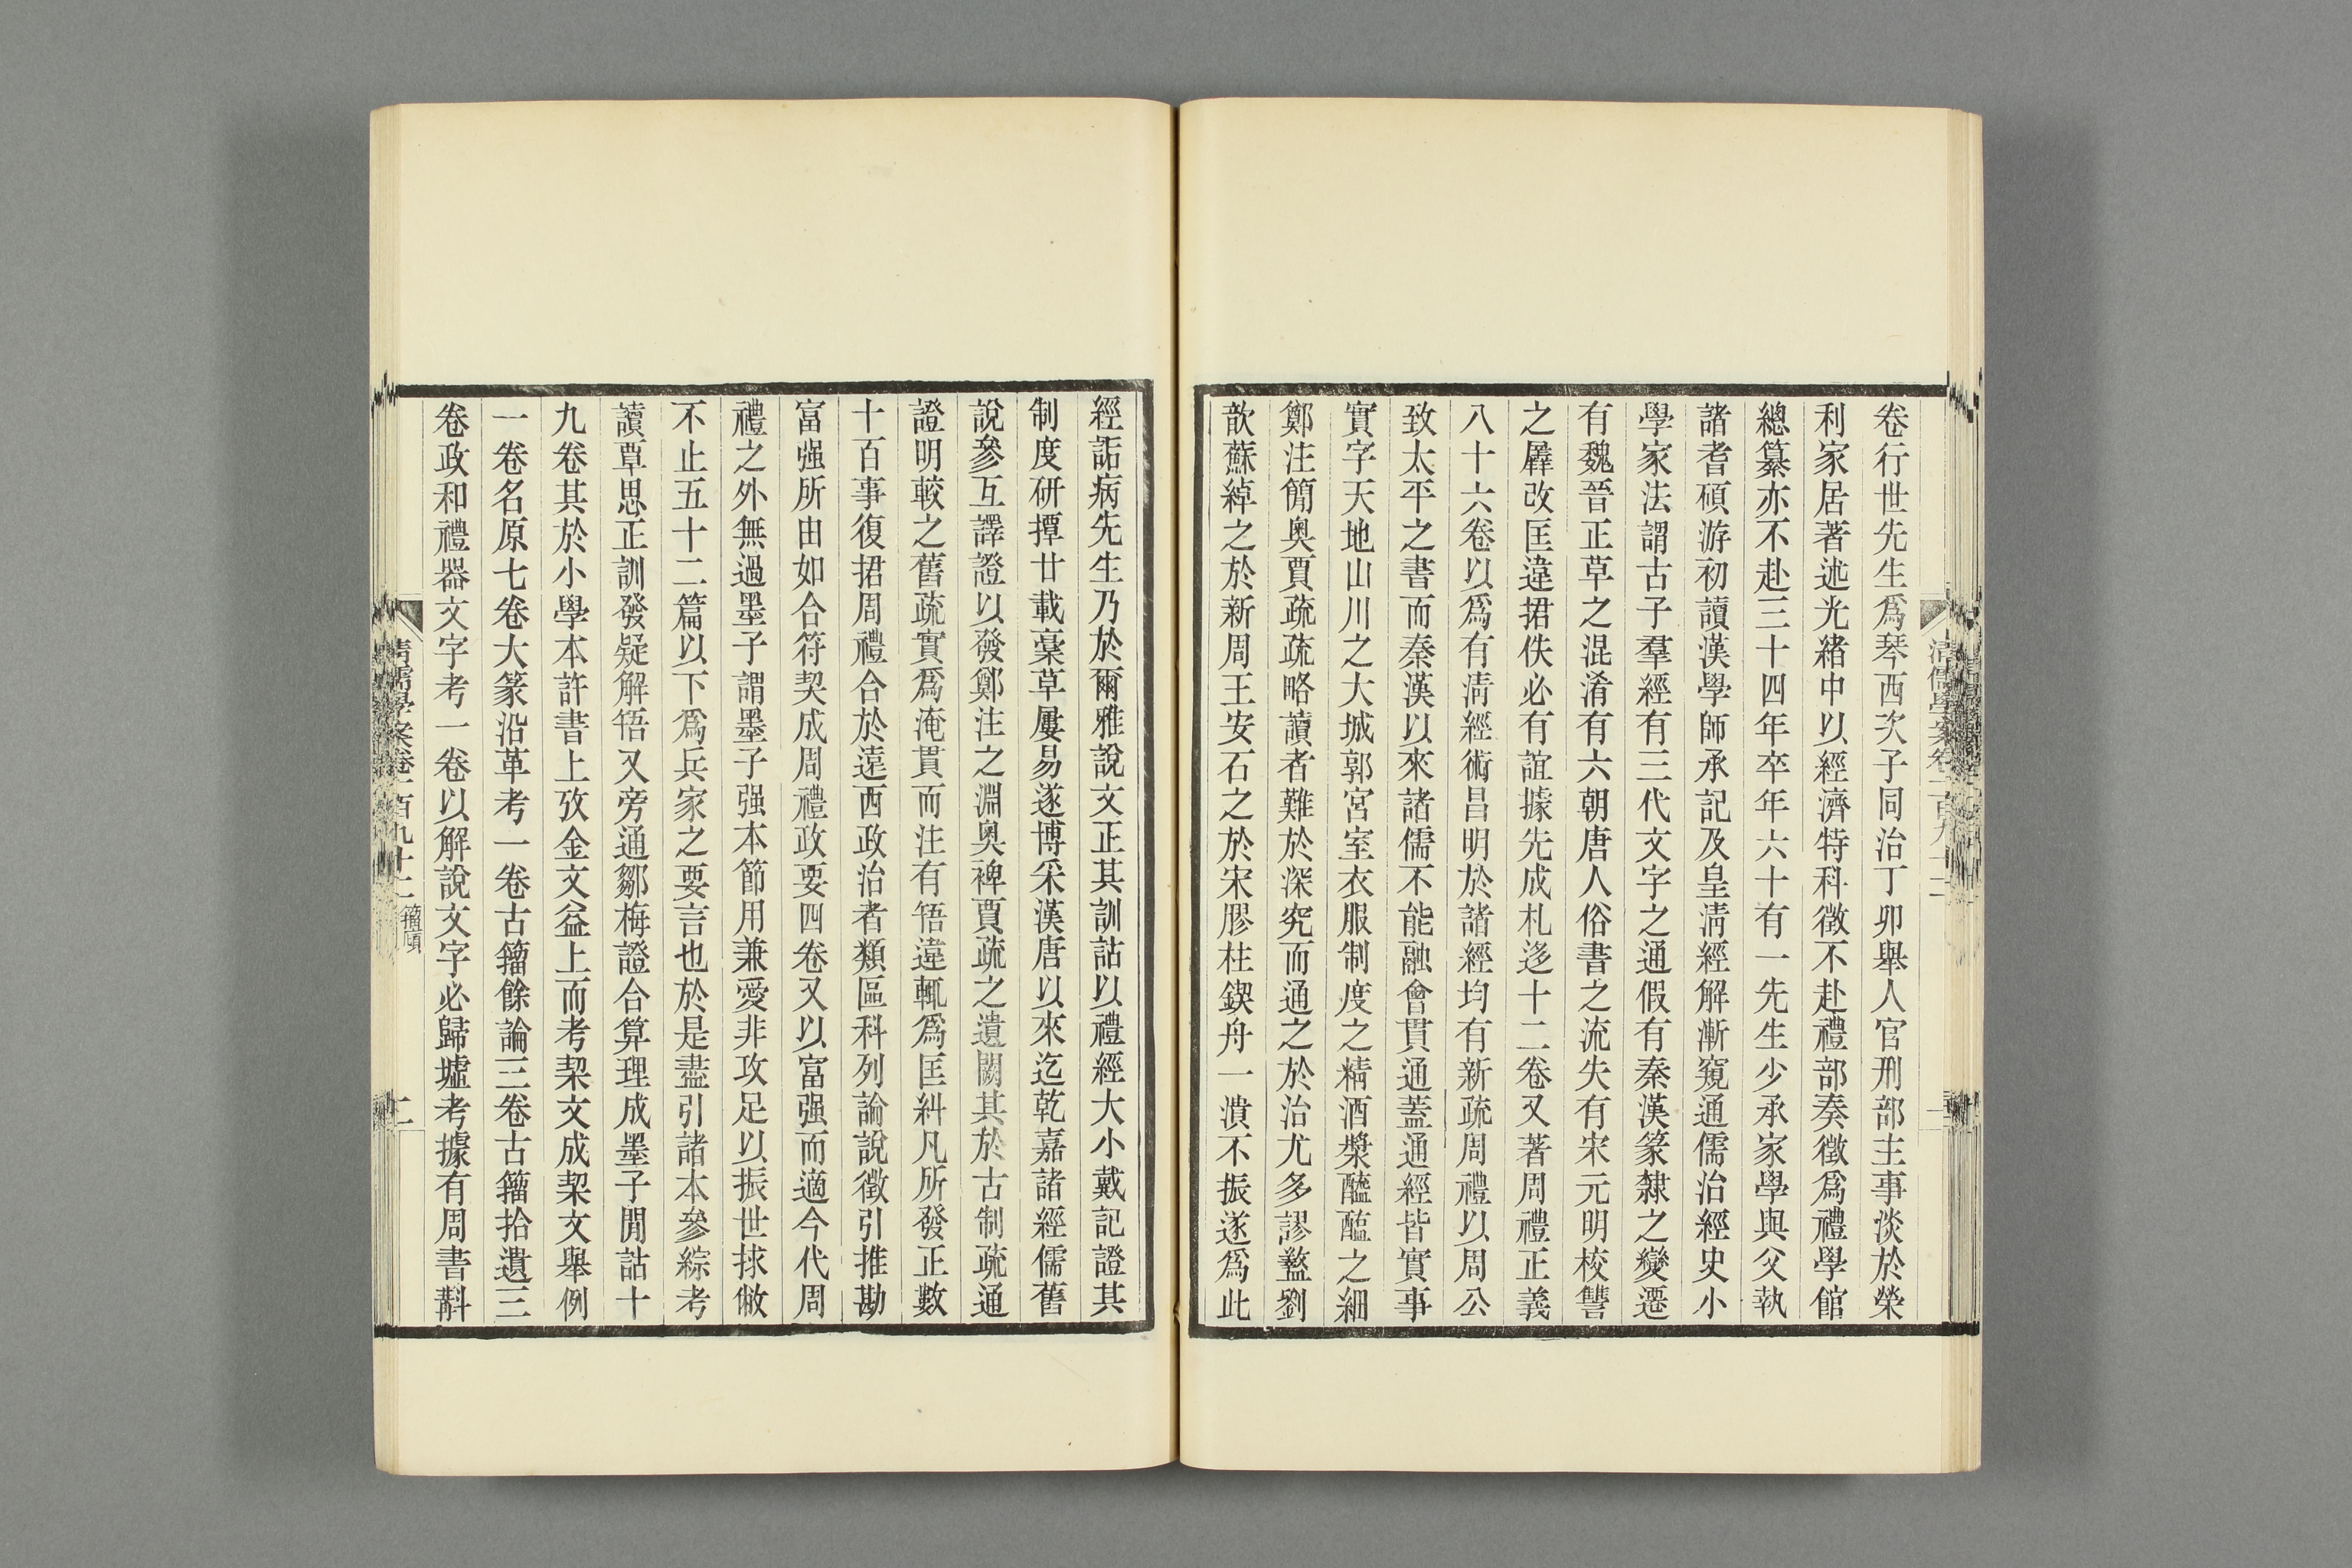 卷行世先生爲琴西次子同治丁卯舉人官刑部主事淡於榮
利家居著述光緒中以經濟特科徵不赴禮部奏徵爲禮學館
總纂亦不赴三十四年卒年六十有一先生少承家學與父執
諸耆碩游初讀漢學師承記及皇淸經解漸窺通儒治經史小
學家法謂古子羣經有三代文字之通假有秦漢篆隸之變遷
有魏晉正草之混淆有六朝唐人俗書之流失有宋元明校讐
之羼改匡違捃佚必有誼據先成札迻十二卷又著周禮正義
八十六卷以爲有淸經術昌明於諸經均有新疏周禮以周公
致太平之書而秦漢以來諸儒不能融會貫通蓋通經皆實事
實字天地山川之大城郭宮室衣服制度之精酒漿醯醢之細
鄭注簡奧賈疏疏略讀者難於深究而通之於治尤多謬盭劉
歆蘇綽之於新周王安石之於宋膠柱鍥舟一潰不振遂爲此
經詬病先生乃於爾雅說文正其訓詁以禮經大小戴記證其
制度研撢廿載稾草屢易遂博采漢唐以來迄乾嘉諸經儒舊
說參互譯證以發鄭注之淵奧裨賈疏之遺闕其於古制疏通
證明較之舊疏實爲淹貫而注有啎違輒爲匡糾凡所發正數
十百事復捃周禮合於遠西政治者類區科列論說徵引推勘
富强所由如合符契成周禮政要四卷又以富强而適今代周
禮之外無過墨子謂墨子强本節用兼愛非攻足以振世捄敝
不止五十二篇以下爲兵家之要言也於是盡引諸本參綜考
讀覃思正訓發疑解啎又旁通鄒梅證合算理成墨子閒詁十
九卷其於小學本許書上攷金文益上而考栔文成栔文舉例
一卷名原七卷大篆沿革考一卷古籀餘論三卷古籀拾遺三
卷政和禮器文字考一卷以解說文字必歸墟考據有周書斠
清儒學案卷一百九十二 籀廎 二